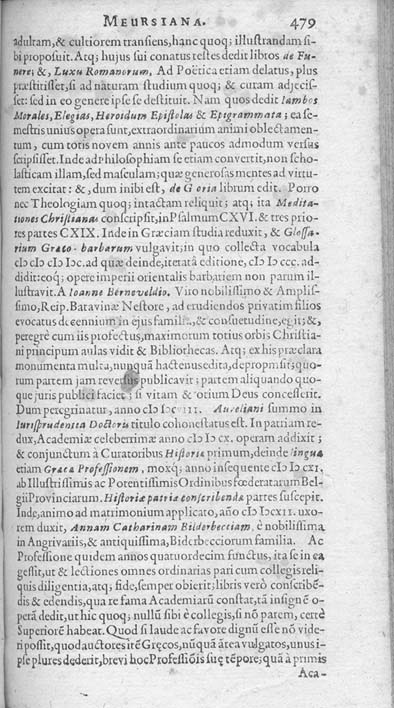 MEURSIANA. 479
adultam, & cultiorem transiens, hanc quoq; illustrandam si-
bi proposuit. Atq; hujus sui conatus testes dedit libros de Fu-
nere; &, Luxu Romanorum. Ad Poëtica etiam delatus, plus
præstitisset, si ad naturam studium quoq; & curam adjecis-
set: sed in eo genere ipse se destituit. Nam quos dedit Iambos
Morales, Elegias, Heroidum Epistolas & Epigrammata; ea se-
mestris unius opera sunt, extraordinarium animi oblectamen-
tum, cum totis novem annis ante paucos admodum versus
scripsisset. Inde ad Philosophiam se etiam convertit, non scho-
lasticam illam, sed masculam; quæ generosas mentes ad virtu-
tem excitat: & , dum inibi est, de G oria librum edit. Porro
nec Theologiam quoq; intactam reliquit; atq; ita Medita-
tiones Christianas conscripsit, in Psalmum CXVI. & tres prio-
res partes CXIX. Inde in Græciam studia reduxit, & Glossa-
rium Græco-barbarum vulgavit; in quo collecta vocabula
cIↃ cIↃ cIↃ IↃc. ad quæ deinde, iterata editione, cIↃ IↃ ccc. ad-
didit: eoq; opere imperii orientalis barbatiem non parum il-
lustravit. A Ioanne Berneveldio. Viro nobilissimo & Amplis-
simo, Reip. Baravinæ Nestore, ad erudiendos privatim filios
evocatus decennium in ejus familia, & consuetudine, egit; &,
peregrè cum iis profectus, maximorum totius orbis Christia-
ni principum aulas vidit & Bibliothecas. Atq; ex his præclara
monumenta multa, nunquā hactenus edita, depropmsit; quo-
rum partem jam reversus publicavit; partem aliquando quo-
que juris publici faciet; si vitam & otium Deus concesserit.
Dum peregrinatur, anno cIↃ IↃcVIII. Aureliani summo in
Iurisprudentia Doctoris titulo cohonestatus est. In patriam re-
dux, Academiæ celeberrimæ anno cIↃ IↃ cx. operam addixit;
& conjunctum à Curatoribus Historiæ primum, deinde linguæ
etiam Græcæ Professionem, moxq; anno insequente cIↃ IↃ cXI.
ab Illustrissimis ac Potentissimis Ordinibus fœderatarum Bel-
gii Provinciarum. Historiæ patriæ conscribendæ partes suscepit.
Inde, animo ad matrimonium applicato, año cIↃ IↃcXII. uxo-
rem duxit, Annam Catharinam Bilderbecciam, è nobilissima
in Angrivariis, & antiquissima, Biderbecciorum familia. Ac
Professione quidem annos quatuordecim functus, ita se in ea
gessit, ut & lectiones omnes ordinarias pari cum collegis reli-
quis diligentia, atq; fide, semper obierit; libris verò conscribē-
dis & edendis, qua re fama Academiarū constat, tā insignē o-
perā dedit, ut hic quoq; nullū sibi è collegis, si nō parem, certè
Superiorē habeat. Quod si laude ac favore dignū esse nō vide-
ri possit, quod auctores itē Gręcos, nūquā ātea vulgatos, unus i-
pse plures dederit, brevi hoc Professiōis suę tēpore; quā à primis
Aca-